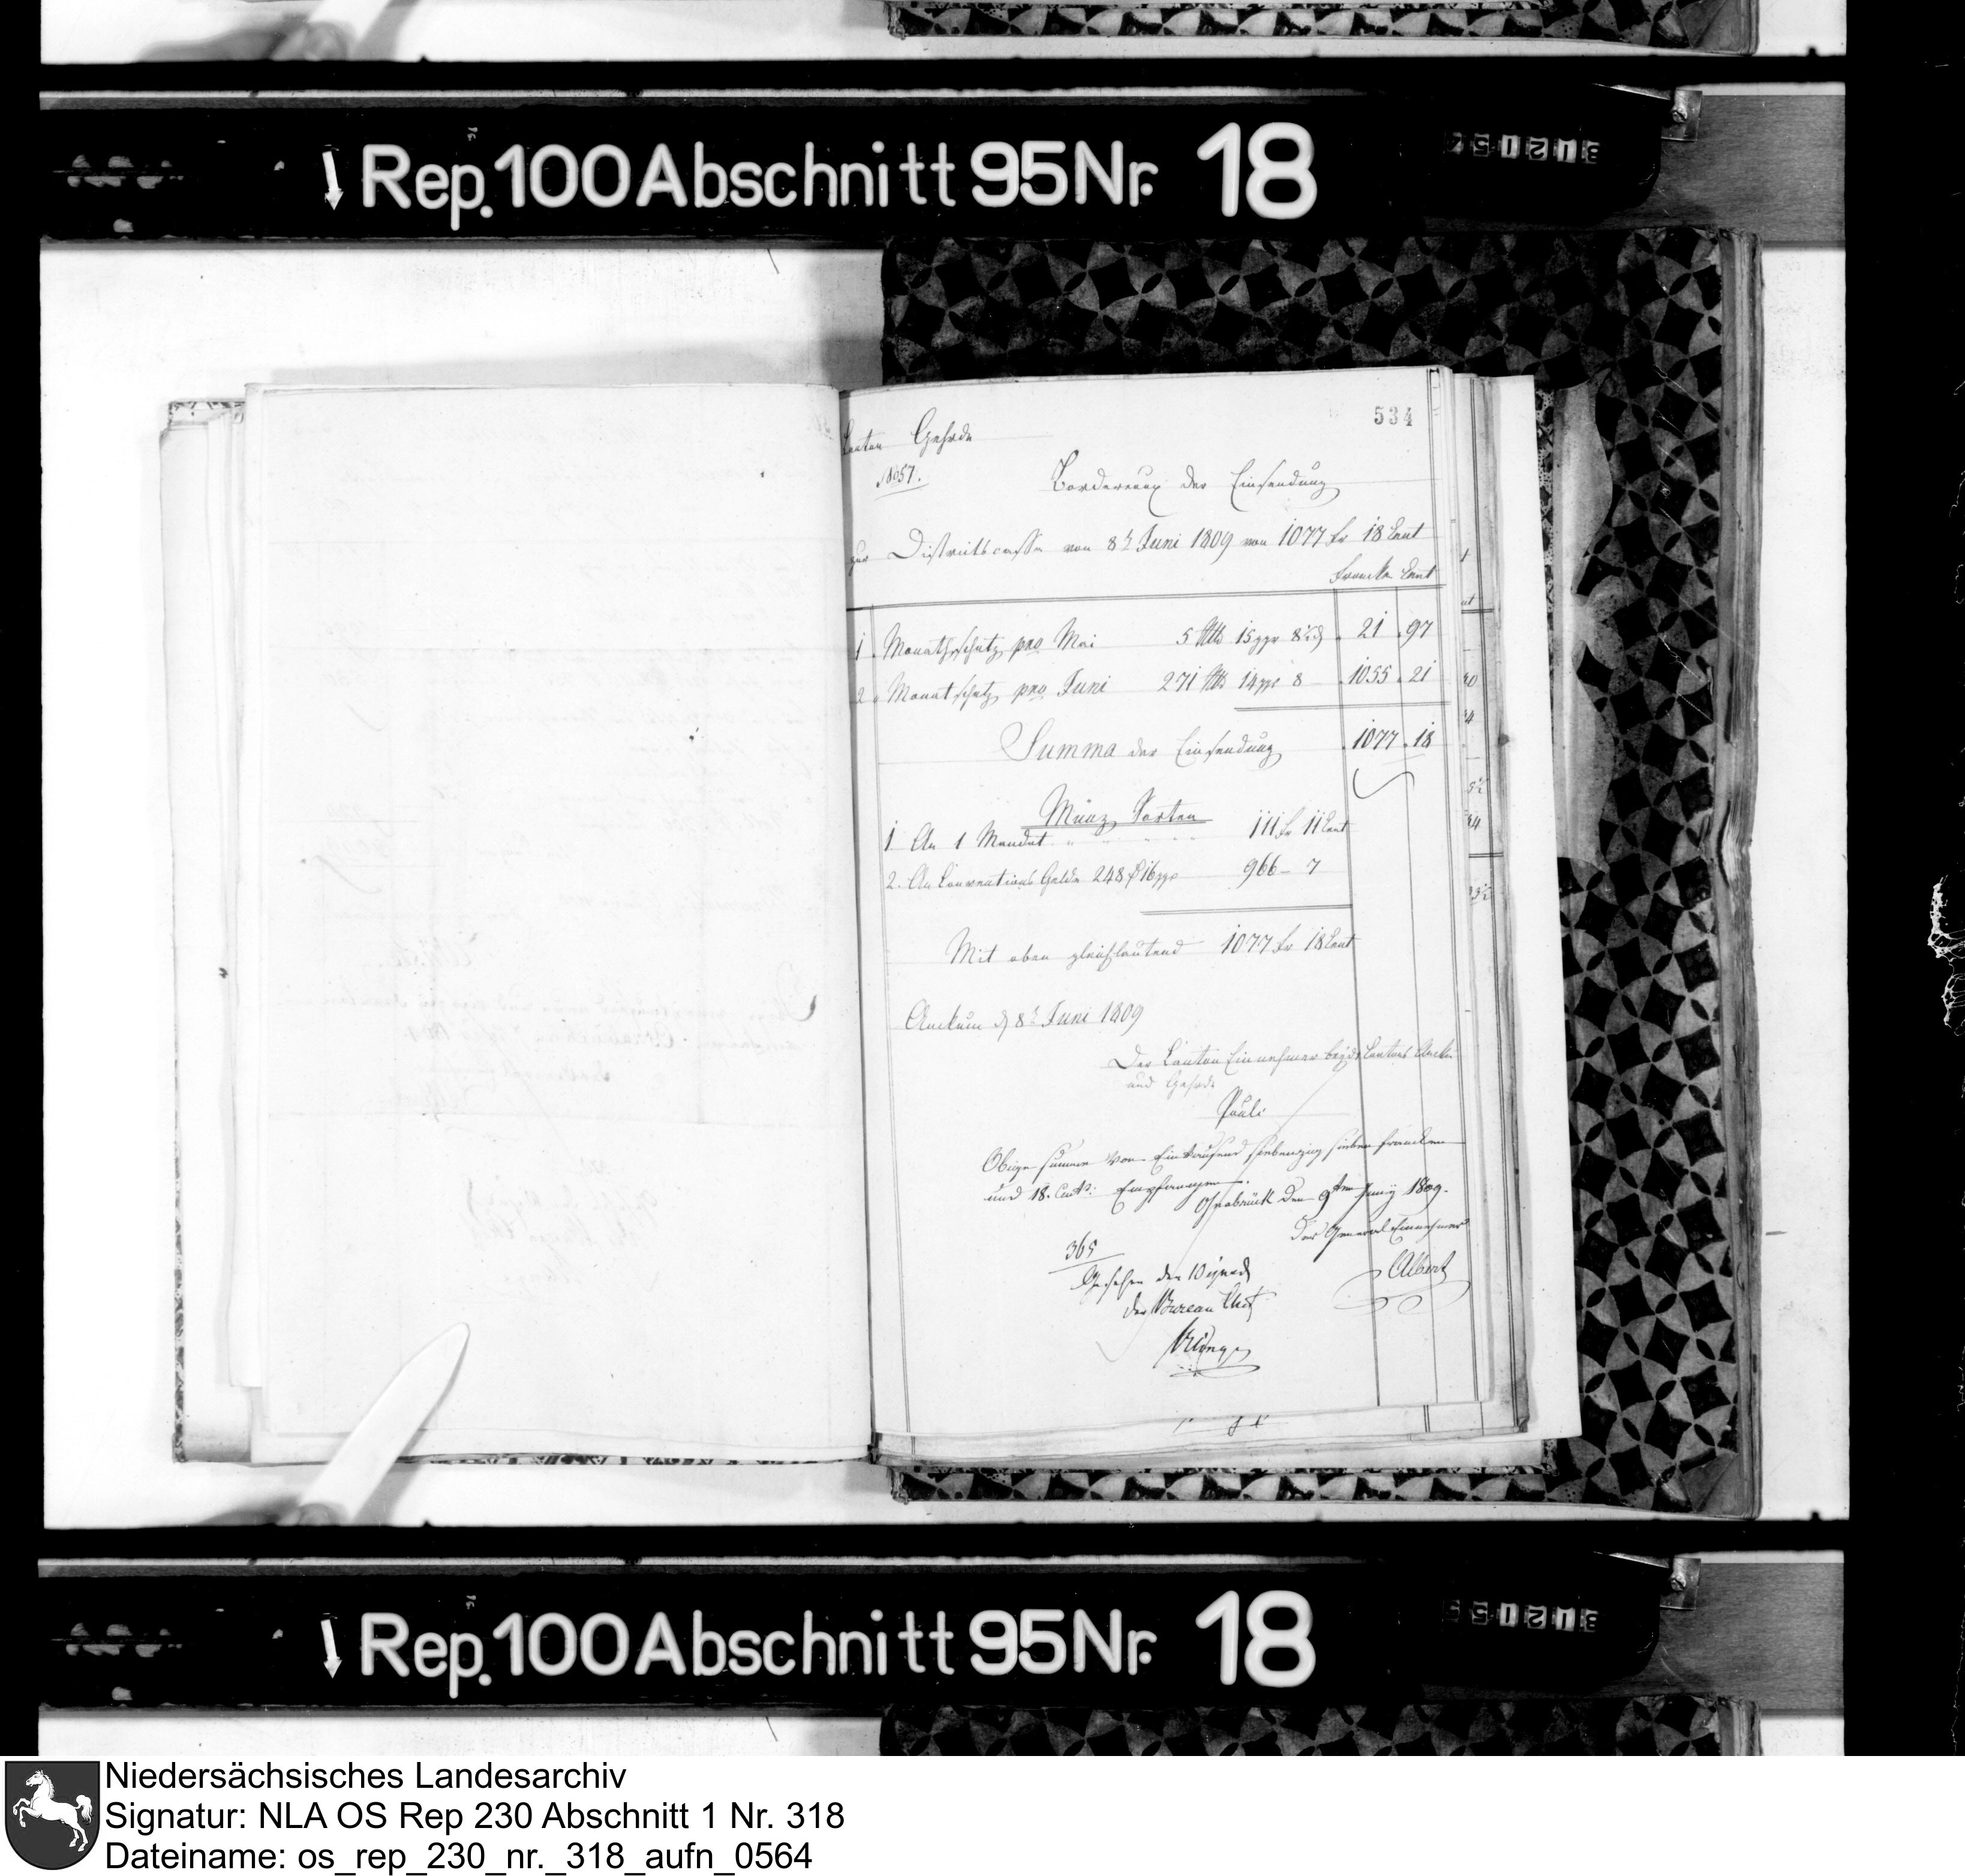 Rep. 100 Abschnitt 95 Nr. 18
534
Canton Gehrde
1057.
Bordereaux der Einsendung
zur Districtscasse von 8t Juni 1809 von 1077 Fr 18 Cent
Francken Cent
1. Monathschatz pro Mai 5 Rtlr 15 ggr 8 21 . 97
2. Monatschatz pro Juni 271 Rtlr 14 ggr 8 1055 . 21
Summa der Einsendung 1077 . 18
Münz Sorten
1. An 1 Mandat 111 Fr 11 Cent
2. An Conventions Gelde 248 16 ggr 966 - 7
Mit oben gleichlautend 1077 Fr 18 Cent
Anckum d 8t Juni 1809
Der Canton Einnehmer beyder Cantons Anckum
und Gehrde
Pauli
Obige Summe von Eintausend siebenzig sieben francken
und 18. Cent: Empfangen.
Osnabrück den 9ten Juny 1809.
Der General Einnehmer
Albert
365
Gesehen den 10
der Bureau Chef
Rep. 100 Abschnitt 95 Nr. 18
Niedersächsisches Landesarchiv
Signatur: NLA OS Rep 230 Abschnitt 1 Nr. 318
Dateiname: os_rep_230_nr._318_aufn_0564